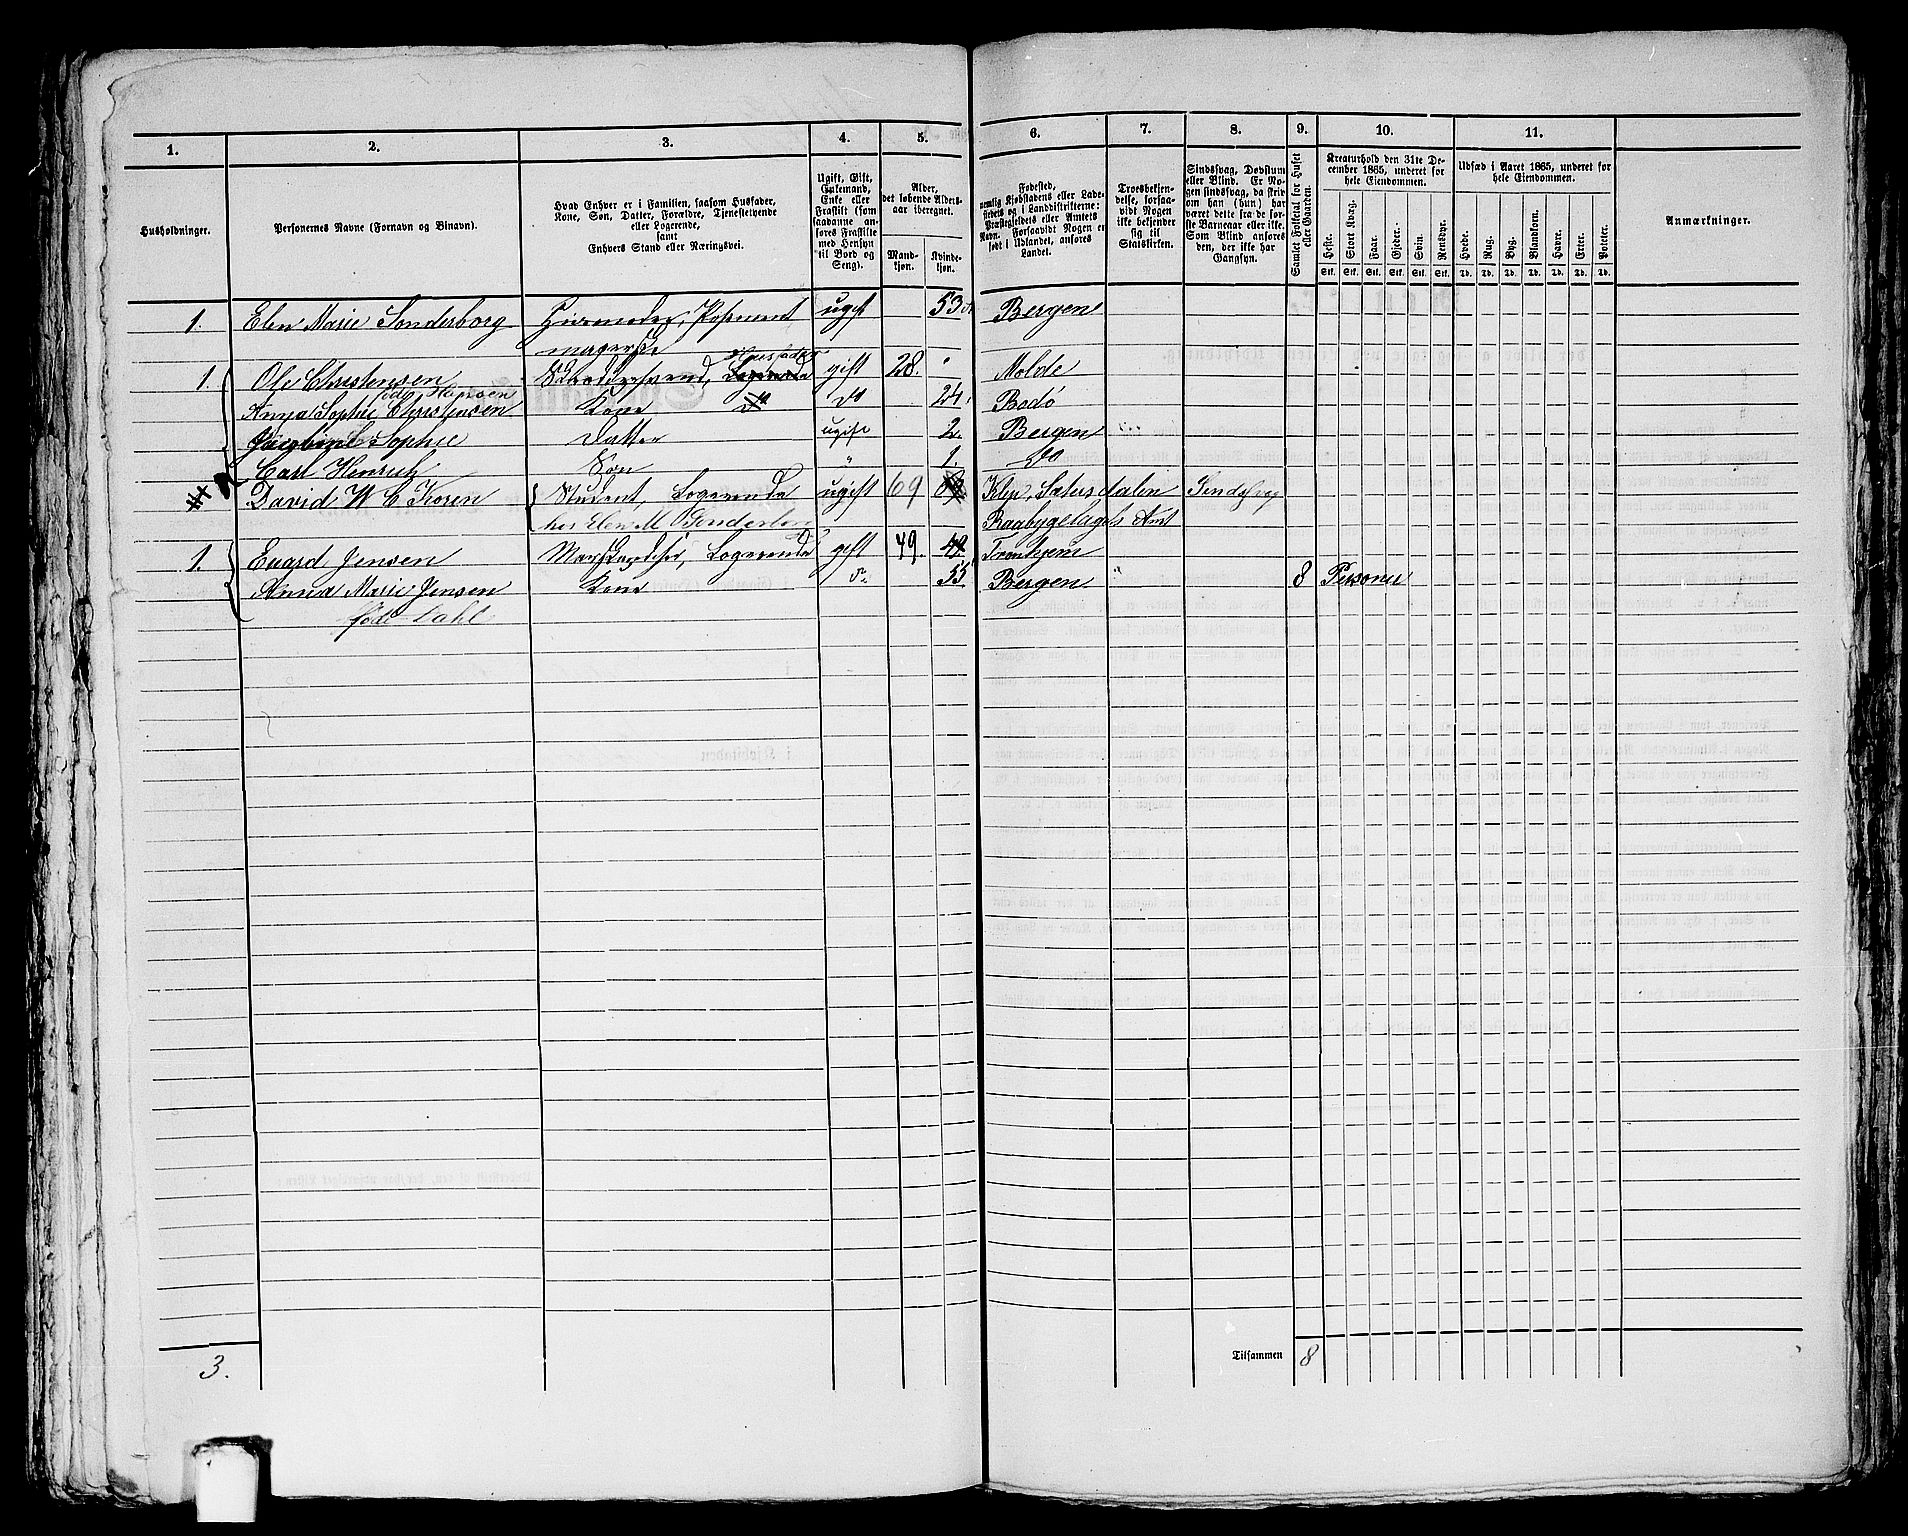 1. 2. 3. 4. 5. 6. 7. 8. 9. 10. 11.
Husholdninger.
Personernes Navne (Fornavn og Binavn).
Hvad Enhver er i Familien, saasom Husfader,
Kone, Søn, Datter, Forældre, Tjenestetyende
eller Logerende,
samt
Enhvers Stand eller Næringsvei.
Ugift, Gift,
Enkemand,
Enke eller
Fraskilt (som
saadanne an-
føres Fraskilte
med Hensyn
til Bord og
Seng).
Alder,
det løbende Alders-
aar iberegnet.
Mand-
kjøn.
Kvinde-
kjøn.
Fødested,
nemlig Kjøbstadens eller Lade-
stedets og i Landdistrikterne:
Præstegjeldets eller Amtets
Navn. Forsaavidt Nogen er
født i Udlandet, anføres
Landet.
Troesbekjen-
delse, forsaa-
vidt Nogen
ikke bekjender
sig til
Statskirken.
Sindssvag, Døvstum
eller Blind. Er No-
gen sindssvag, da skriv
om han (hun) har
været dette fra de før-
ste Barneaar eller ikke.
Som Blind anføres
den, der ikke har
Gangsyn.
Samlet Folketal for Huset
eller Gaarden.
Kreaturhold den 31te De-
cember 1865, underet for
hele Eiendommen.
Heste. Stort Kvæg. Faar. Gjeder. Svin. Rensdyr.
Stk. Stk. Stk. Stk. Stk. Stk.
Udsæd i Aaret 1865, underet for
hele Eiendommen.
Hvede. Rug. Byg. Blandkorn. Havre. Erter. Poteter.
Td. Td. Td. Td. Td. Td. Td.
Anmærkninger.
1. Elen Marie Sonderborg Huusmoder, Posement ugift 53 Bergen
magerske
Huusfader
1. Ole Christensen Skredersvend, Logerende gift 28. " Molde
født Hansen
Anna Sophie Christensen Kone do do 24. Bodø
Jacobine Sophie Datter ugift 2. Bergen
Carl Henrich Søn " 1. do
David W C Koren Student, Logerende ugift 69 Sætersdalen Sindssvag
hos Elen M Sonderborg Raabygelagets Amt
1. Evard Jensen Logerende gift 49. 49. Tronhjem
Anna Marie Jensen Kone do 55 Bergen " 8 Personer
født Dahl
Tilsammen 8
3.